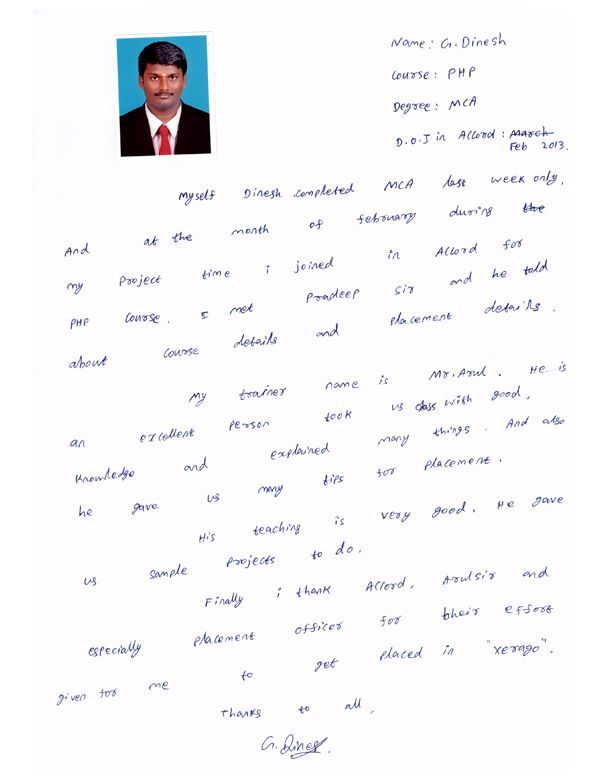 Name: G. Dinesh
Course: PHP
Degree: MCA
D.O.J in Accord: March
Feb 2013.
Myself Dinesh completed MCA last week only.
And at the month of february during the
my project time i joined in Accord for
PHP course. I met Pradeep sir and he told
about course details and placement details.
My trainer name is Mr. Arul. He is
an excellent person took us class with good,
knowledge and explained many things. And also
he gave us many tips for placement.
His teaching is very good. He gave
us sample projects to do.
Finally i thank Accord, Arul sir and
especially placement officer for their effort
given for me to get placed in "xerago".
Thanks to all.
G. Dinesh.